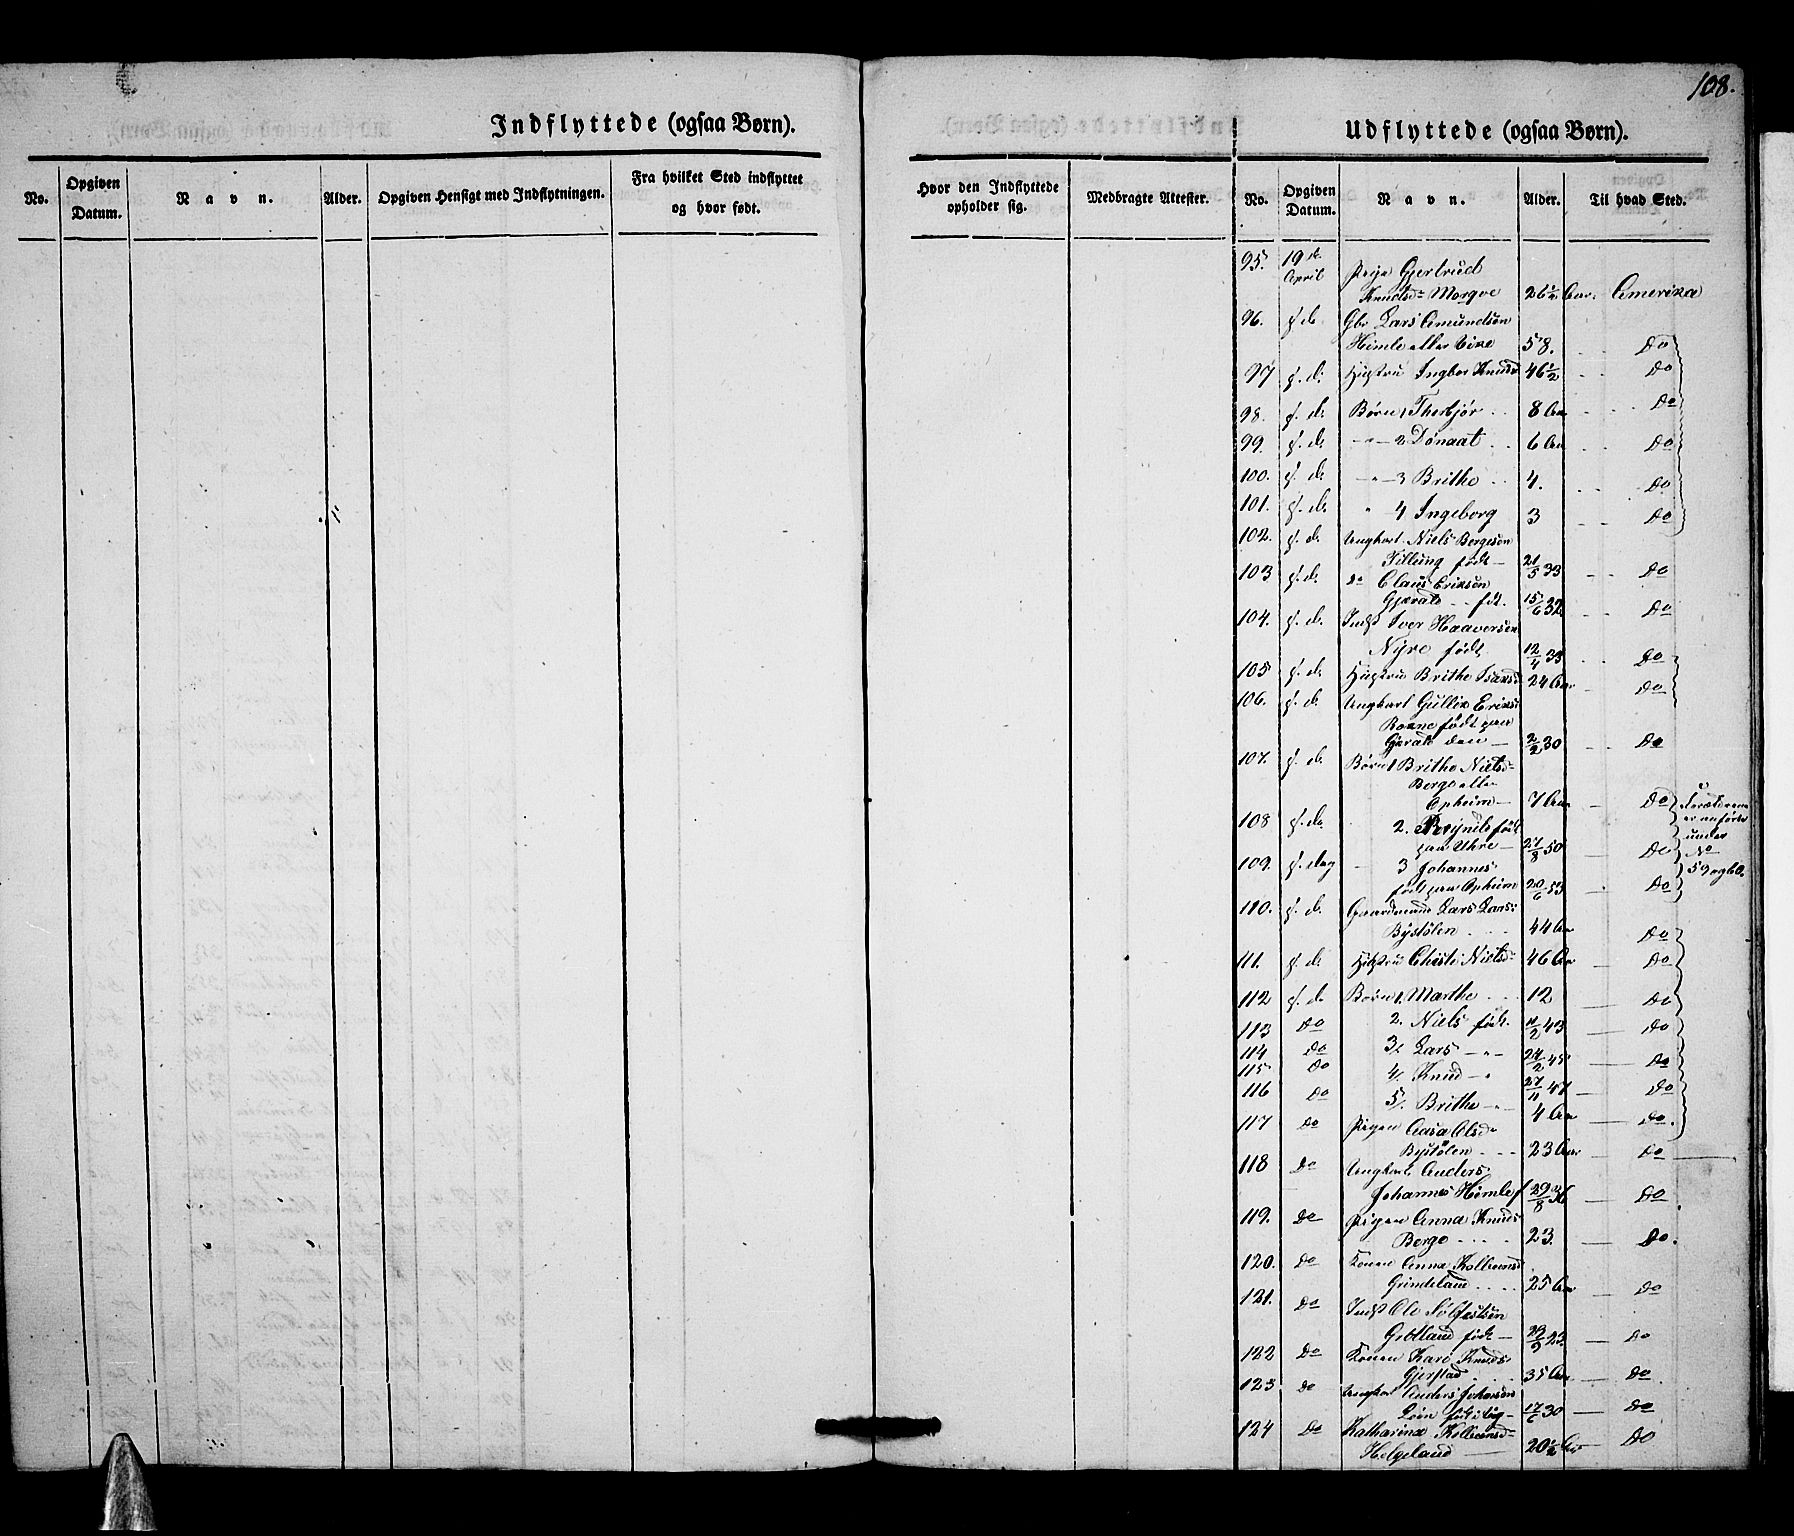 108.
Indflyttede (ogsaa Børn).
No. Opgiven Datum. Navn. Alder. Opgiven Hensigt med Indflytningen. Fra hvilket Sted indflyttet og hvor født.
Hvor den Indflyttede opholder sig. Medbragte Attester.
Udflyttede (ogsaa Børn).
No. Opgiven Datum. Navn. Alder. Til hvad Sted.
95. 19de April Pige Gjertrud
Knudsd= Mørqve 26½ Aar. Amerika
96. s. d. Gbr Lars Amundsøn
Himle eller 58. Do
97 s. d. Hustru Ingbor Knudsd 46½ Do
98. s. d. Børn 1 Thorbjør 8 Aar Do
99. s. d. 2 Dønaat 6 Aar Do
100. s. d. 3 Brithe 4. Do
101. s. d. 4 Ingeborg 3 Do
102. s. d. Ungkarl Niels Bergesøn
Tillung født 21/5 33 Do
103 s. d. do Claus Eriksøn
fdt. 15/6 32 Do
104. s. d. Indst Iver Haaversøn
Nyre født 12/4 33 Do
105 s. d. Hustru Brithe 24 Aar Do
106. s. d. Ungkarl Gullik Eriks:
født paa
den 2/2 30 Do
107. s. d. Børn 1 Brithe Nielsd=
Berge eller
Opheim 7 Aar Do
Forældrene
er anførte
under
No
59 og 60.
108 s. d. 2. født
paa Uhre 27/8 50 Do
109. s. dag 3 Johannes
født paa Opheim 20/6 53 Do
110. s. d. Gaardmand Lars Lars:
Bystølen 44 Aar Do
111. s. d. Hustru Christi Nielsd= 46 Aar Do
112 s. d. Børn 1. Marthe 12 Do
113 Do 2. Niels født. 11/2 43 Do
114 Do 3/ Lars 24/2 45 Do
115 Do 4/ Knud 27/11 47 Do
116 Do 5/. Brithe 4 Aar Do.
117 Do Pigen Aasa Olsd=
Bystølen 23 Aar Do
118 Do Ungkarl Anders
Johannes Himle f 29/8 36 Do
119. Do Pigen Anna Knuds
Berge 23. Do.
120. Do Konen Anna Kolbeensd
Grindeland 25 Aar Do
121. Do Indst Ole Sølfestsøn
født 29/9 23 Do
122 Do Konen Kari Knuds
Gjerstad 35 Aar Do
123 Do Ungkar Anders Johansøn
Løin født 17/6 30 Do
124 Do Katharina Kolbeensd=
Helgeland 20½ Aar Do